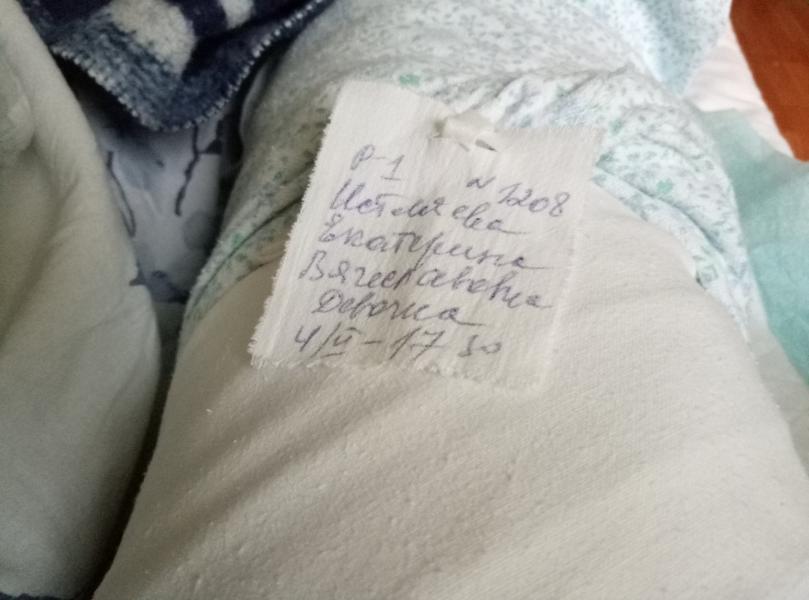 Р-1 № 1208
Истляева
Екатерина
Вячеславовна
Девочка
4/II - 17 30